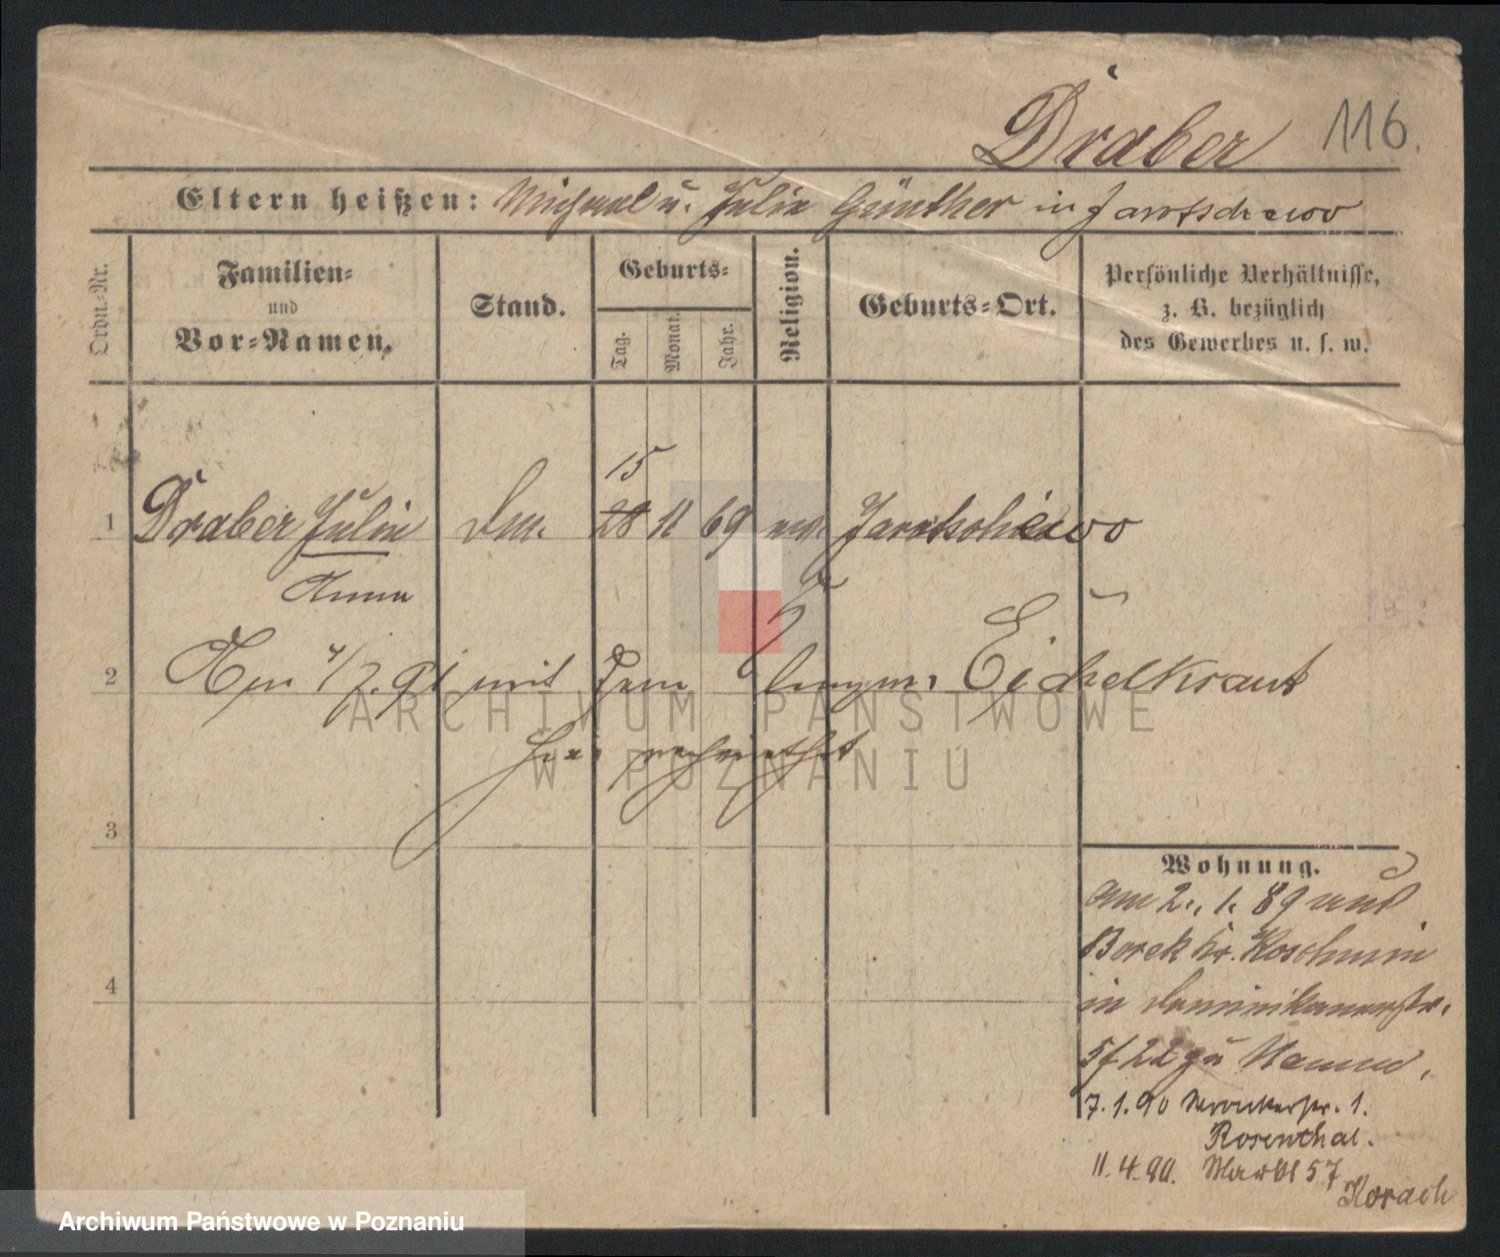 Draber 116.
Eltern heißen: Michael u. Julia Günther in Jarotschewo
Ordn.-Nr.
Familien-
und
Vor-Namen.
Stand.
Geburts-
Tag.
Monat.
Jahr.
Religion.
Geburts-Ort.
Persönliche Verhältnisse,
z. B. bezüglich
des Gewerbes u. s. w.
15
1 Draber Julia 28 11 69 Jarotschewo
Anna
2 Am 4/2. 91 mit dem Eichelkraut
hier verheirathet
ARCHIWUM PAŃSTWOWE
W POZNANIU
3
4
Wohnung.
am 2. 1. 89 aus
Borek Kr. Koschmin
in Dominikanerstr.
7. 1. 90 Wronkerstr. 1.
Rosenthal.
11. 4. 90. Markt 57
Korach
Archiwum Państwowe w Poznaniu